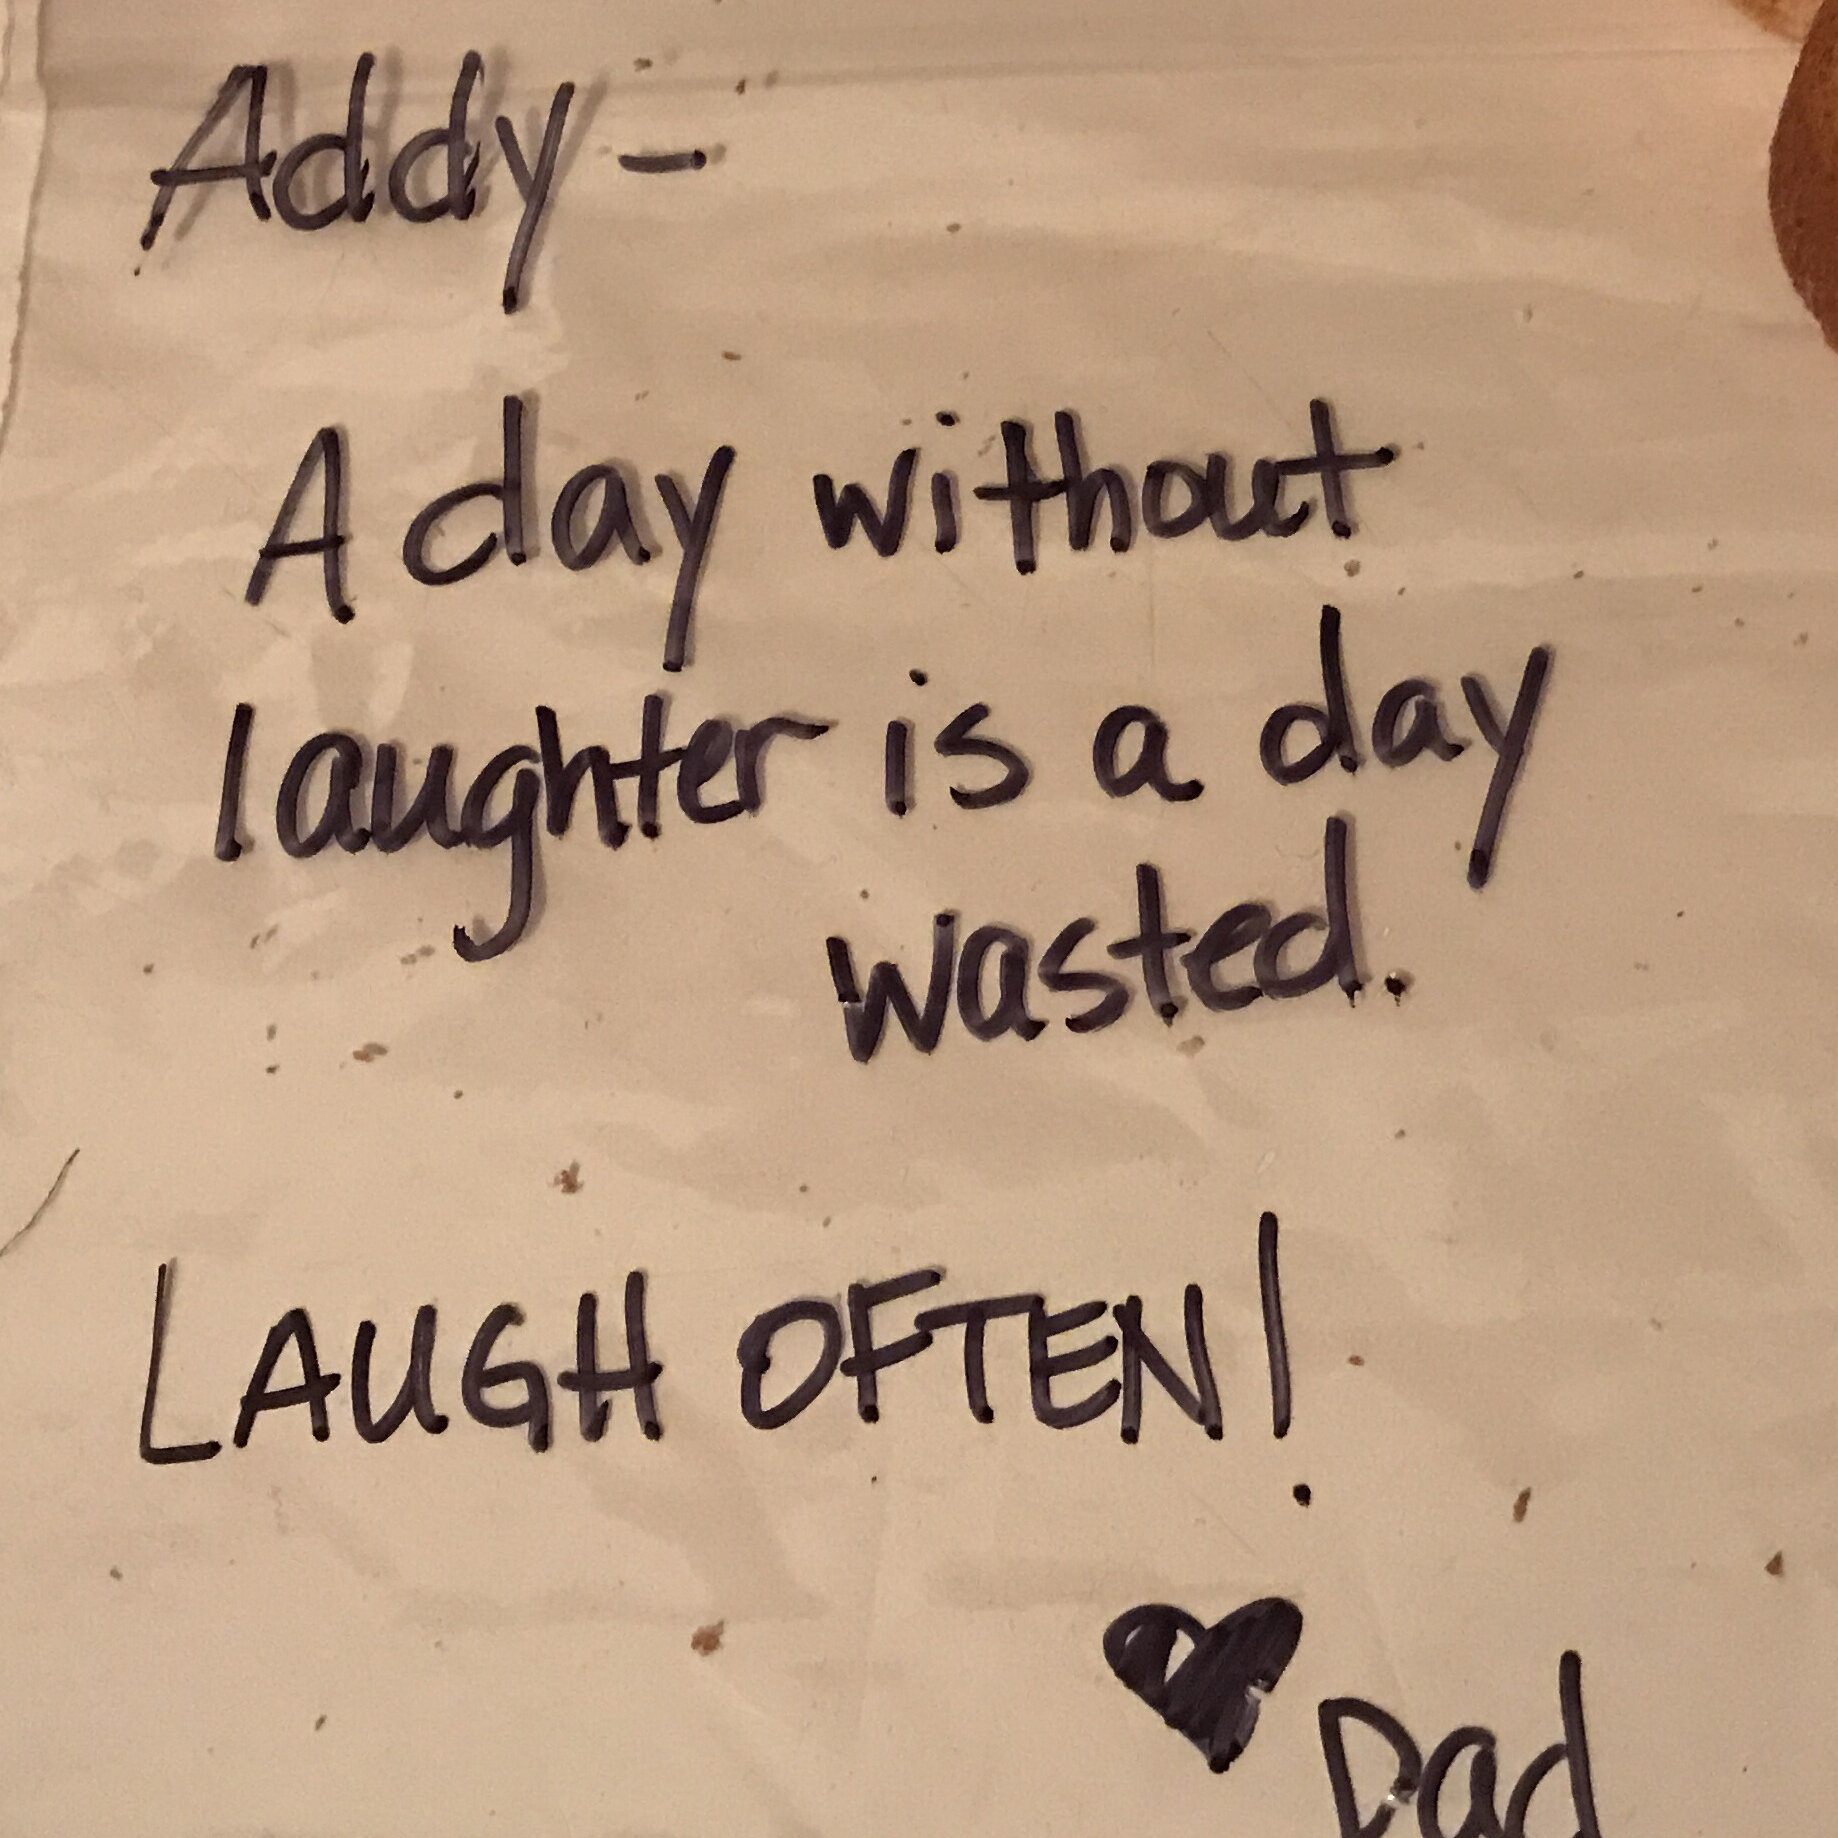 Addy -
A day without
laughter is a day
wasted.
LAUGH OFTEN!
♥ Dad